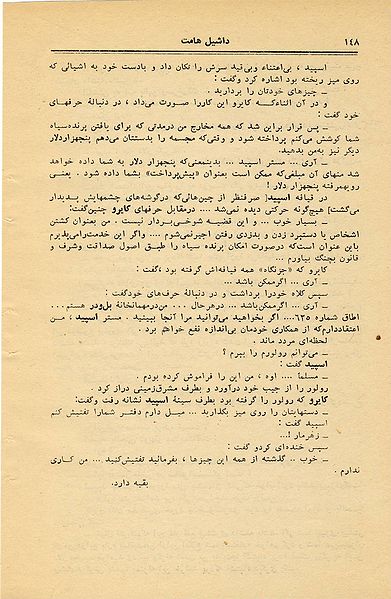 ۱۴۸
داشیل هامت
اسپید ، بی‌اعتناء وبی‌قید سرش را تکان داد و بادست خود به اشیائی که
روی میز ریخته بود اشاره کرد وگفت :
ــ چیزهای خودتان را بردارید .
و در آن اثناءکــه کایرو این کاررا صورت می‌داد ، در دنبالهٔ حرفهای
خود گفت :
ــ پس قرار براین شد که همه مخارج من درمدتی که برای یافتن پرنده‌سیاه
شما کوشش می‌کنم پرداخته شود و وقتی‌که مجسمه را بدستتان می‌دهم پنجهزاردلار
دیگر نیز به‌من بدهید.
ــ آری ... مستر اسپید ... بدینمعنی‌که پنجهزار دلار به شما داده خواهد
شد منهای آن مبلغی‌که ممکن است بعنوان «پیش‌پرداخت» بشما داده شود . یعنی
رویهمرفته پنجهزار دلار !
در قیافه اسپید( صرفنظر از چین‌هائی‌که درگوشه‌های چشمهایش پدیدار
می‌گشت) هیچ‌گونه حرکتی دیده نمی‌شد .... درمقابل حرفهای کایرو چنین‌گفت:
ــ بسیار خوب ... و این قضیــه شوخی‌بردار نیست . من بعنوان کشتن
اشخاص یا دستبرد زدن و بدزدی رفتن اجیرنمی‌شوم .... واگر این خدمت‌رامی‌پذیرم
باین عنوان است‌که درصورت امکان پرنده سیاه را طبق اصول صداقت وشرف و
قانون بچنگ بیاورم ...
کایرو که «جزنگاه» همه قیافه‌اش گرفته بود ،گفت :
ــ آری ... اگرممکن باشد ...
سپس کلاه خودرا برداشت و در دنبالهٔ حرف‌های خودگفت :
ــ آری ... اگرممکن باشد ... درهرحال ... من‌درمهمانخانهٔ بل‌ودر هستم . . .
اطاق شماره ۶۳۵.... اگر بخواهید می‌توانید مرا آنجا ببینید . مستر اسپید ، من
اعتقاددارم‌که از همکاری خودمان بی‌اندازه نفع خواهیم برد .
لحظه‌ای مردد ماند .
ــ می‌توانم رولورم را ببرم ؟
اسپید گفت :
ــ مسلماً .... اوه ، من این را فراموش کرده بودم .
رولور را از جیب خود درآورد و بطرف مشرق‌زمینی دراز کرد .
کایرو که رولور را گرفته بود بطرف سینهٔ اسپید نشانه رفت وگفت:
ــ دستهایتان را روی میز بگذارید ... میل دارم دفتــر شمارا تفتیش کنم
اسپید گفت :
ــ زهرمار !...
سپس خنده‌ای کردو گفت :
ــ خوب .. گذشته از همه این چیزها ، بفرمائید تفتیش‌کنید ... من کاری
ندارم .
بقیه دارد.